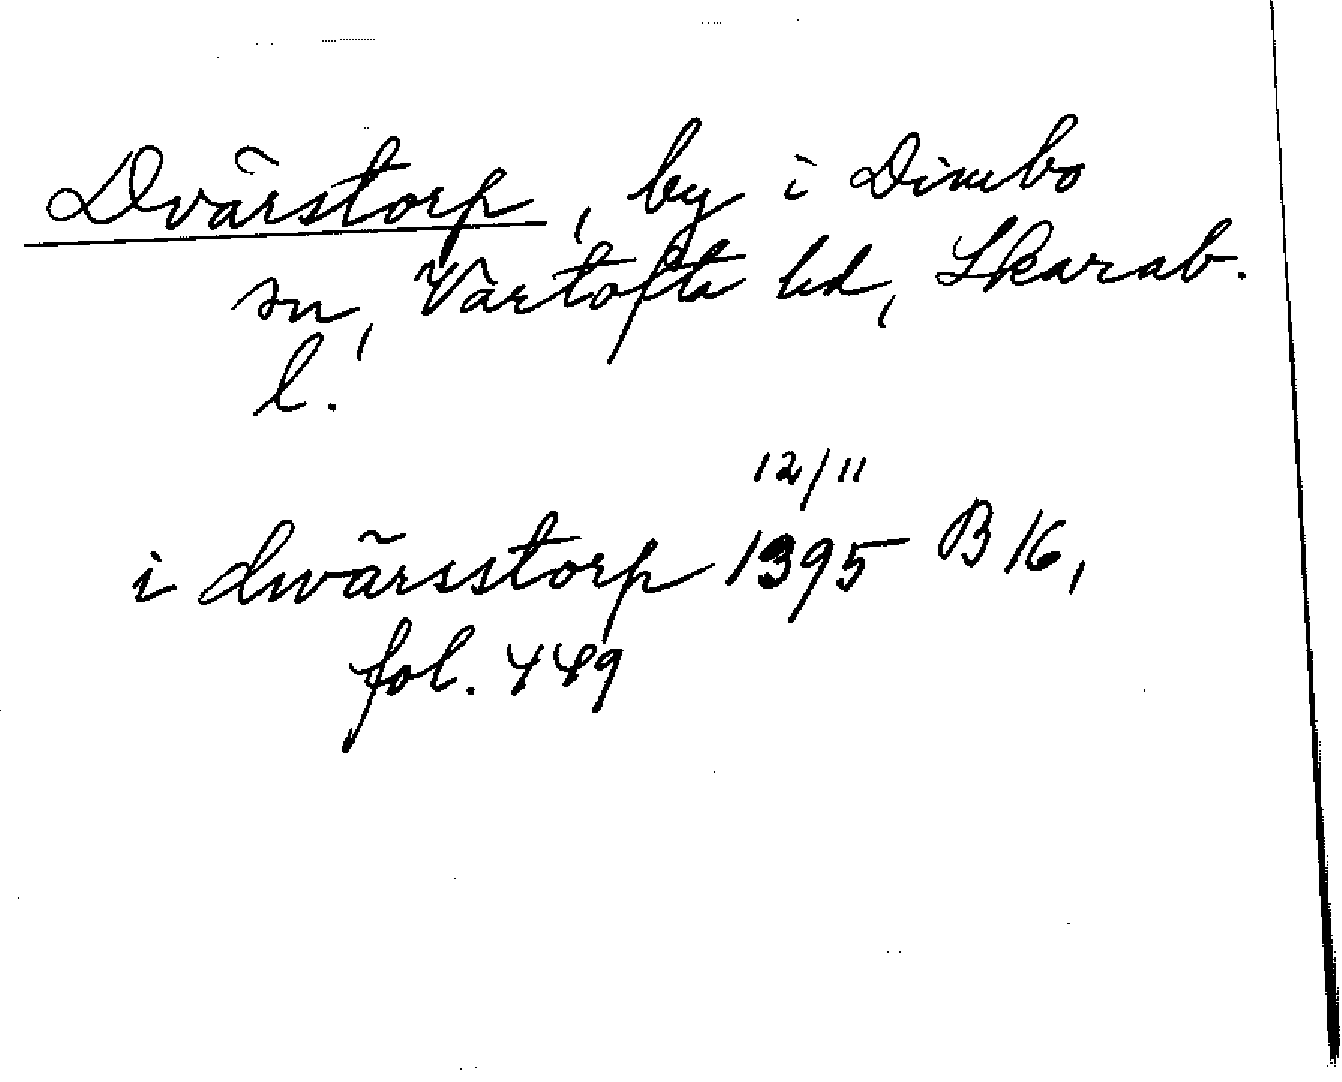 Dvärstorp, by i Dimbo
sn, Vartofta hd, Skarab.
l.
12/11
i dwärsstorp 1395 B 16,
fol. 449